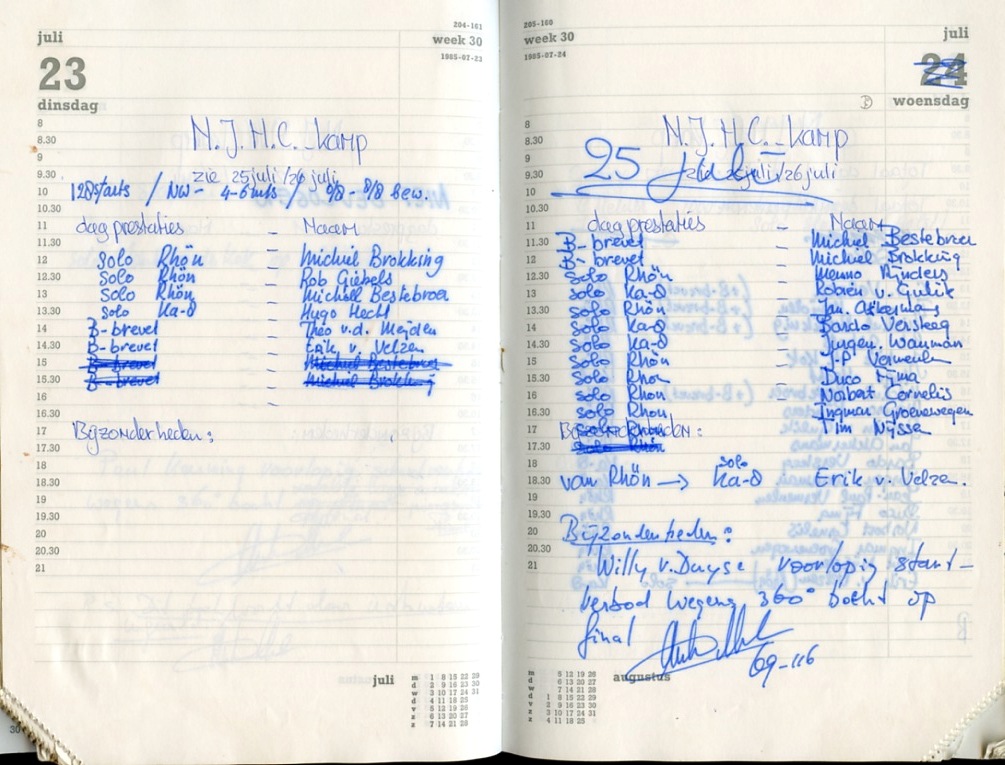 juli
204-161
week 30
1985-07-23
23
dinsdag
N.J.H.C. kamp
zie 25 juli / 26 juli
128 starts / NW - 4-6 mts / 0/8 - 8/8 bew.
dag prestaties - Naam
solo Rhön - Michiel Brokking
solo Rhön - Rob Giebels
solo Rhön - Michiel Bestebroer
solo Ka-8 - Hugo Hecht
B-brevet - Theo v.d. Meijden
B-brevet - Erik v. Velzen
B-brevet - Michiel Bestebroer
B-brevet - Michiel Brokking
Bijzonderheden:
8
8.30
9
9.30
10
10.30
11
11.30
12
12.30
13
13.30
14
14.30
15
15.30
16
16.30
17
17.30
18
18.30
19
19.30
20
20.30
21
juli
m 1 8 15 22 29
d 2 9 16 23 30
w 3 10 17 24 31
d 4 11 18 25
v 5 12 19 26
z 6 13 20 27
z 7 14 21 28
205-160
week 30
1985-07-24
juli
24
woensdag
N.J.H.C. kamp
25 juli
zie 25 juli / 26 juli
dag prestaties - Naam
B-brevet - Michiel Bestebroer
B-brevet - Michiel Brokking
solo Rhön - Menno
solo Ka-8 - Robien v. Gulik
solo Rhön - Jan
solo Ka-8 - Bardo Versteeg
solo Ka-8 - Jurgen
solo Rhön - J-P Vermeulen
solo Rhön - Duco
solo Rhön - Norbert Cornelis
solo Rhön - Ingmar Groenewegen
solo Rhön - Tim Nijsse
Bijzonderheden:
solo Rhön
van Rhön → solo Ka-8 Erik v. Velzen.
Bijzonderheden:
Willy v. Duyse voorlopig start-
verbod wegens 360° bocht op
final
69-116
8
8.30
9
9.30
10
10.30
11
11.30
12
12.30
13
13.30
14
14.30
15
15.30
16
16.30
17
17.30
18
18.30
19
19.30
20
20.30
21
augustus
m 5 12 19 26
d 6 13 20 27
w 7 14 21 28
d 1 8 15 22 29
v 2 9 16 23 30
z 3 10 17 24 31
z 4 11 18 25